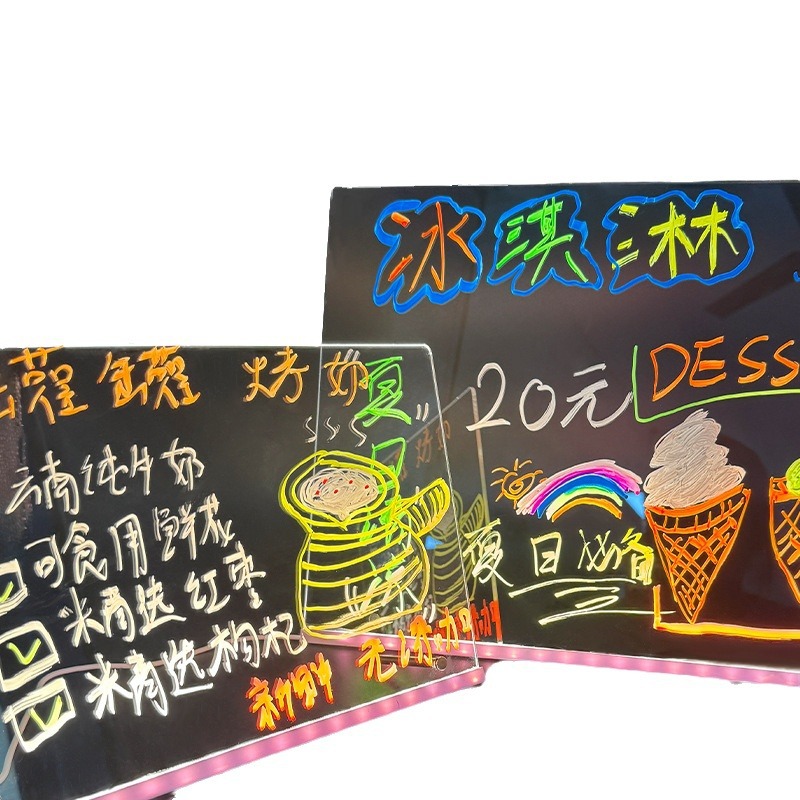 罐罐 烤奶
云南纯牛奶
可食用鲜花
精选红枣
精选枸杞
新鲜 无添加
冰淇淋
20元
DESS
夏日必备